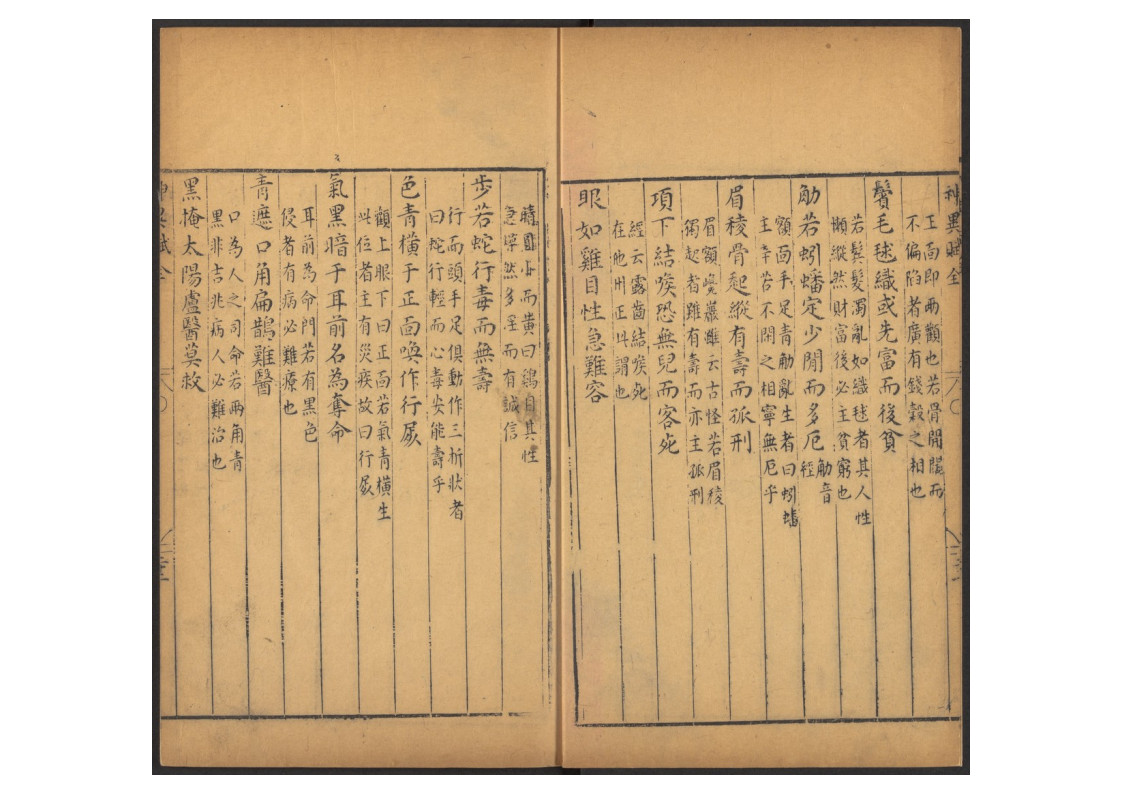 神異賦全
正面即兩顴也若骨開闊而
不偏陷者廣有錢穀之相也
鬢毛毬織或先富而後貧
若鬢髮濁亂如織毬者其人性
懶縱然財富後必主貧窮也
觔若蚓蟠定少閒而多厄
觔音
經
額面手足青觔亂生者曰蚓蟠
主辛苦不閑之相寧無厄乎
眉稜骨起縱有壽而孤刑
眉額巉巖雖云古怪若眉稜
獨起者雖有壽而亦主孤刑
項下結喉恐無兒而客死
經云露齒結喉死
在他州正此謂也
眼如雞目性急難容
睛圓小而黃曰鷄目其性
急學然多淫而有誠信
步若蛇行毒而無壽
行而頭手足俱動作三折狀者
曰蛇行輕而心毒安能壽乎
色青橫于正面喚作行屍
顴上眼下曰正面若氣青橫生
此位者主有災疾故曰行屍
氣黑暗于耳前名為奪命
耳前為命門若有黑色
侵者有病必難療也
青遮口角扁鵲難醫
口為人之司命若兩角青
黑非吉兆病人必難治也
黑掩太陽盧醫莫救